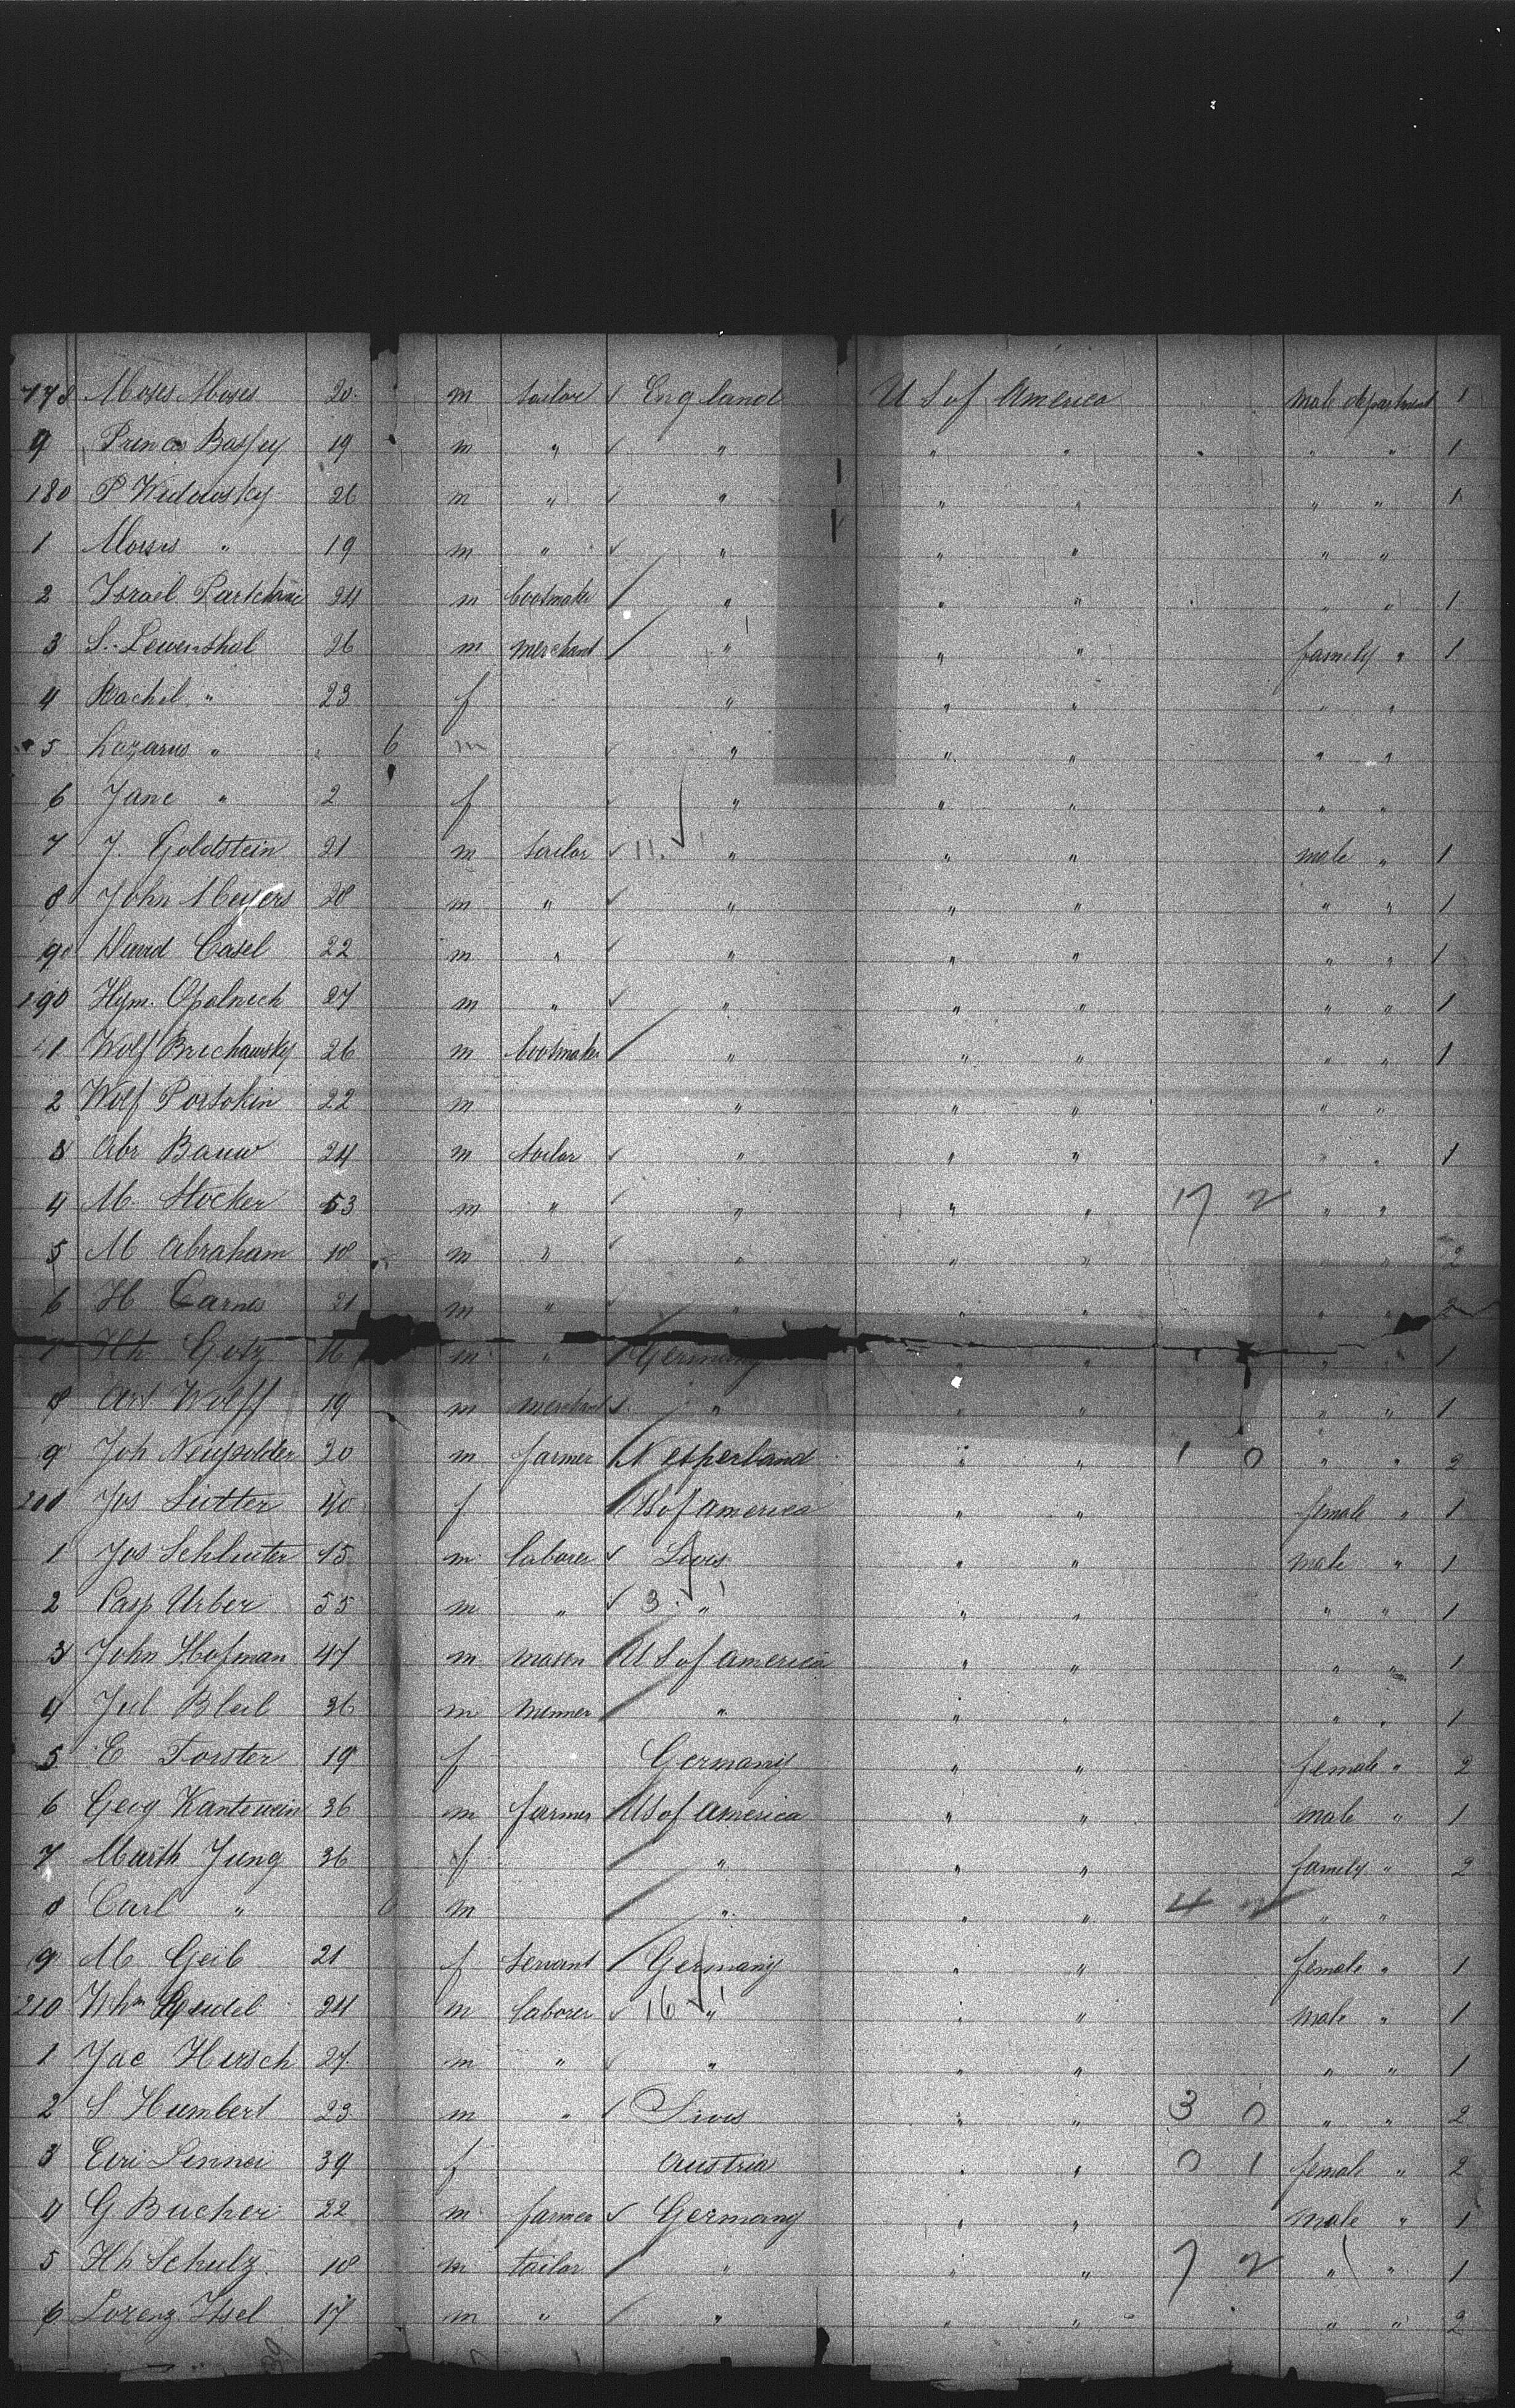 178 Moses Moses 20 m tailor England U S of America male department 1
9 Prince Bassey 19 m " " " " " " 1
180 P Widowsky 26 m " " " " " " 1
1 Moses " 19 m " " " " " "
2 Israel 24 m bootmaker " " " " " 1
3 S. Lewenthal 26 m merchant " " " family " 1
4 Rachel " 23 f " " " " "
5 Lazarus " 6 m " " " " "
6 Jane " 2 f " " " " "
7 J. Goldstein 21 m tailor 11 " " " male " 1
8 John Meyers 28 m " " " " " " 1
90 David Casel 22 m " " " " " " 1
190 Hym. Opalnech 27 m " " " " " " 1
1 Wolf Brichawsky 26 m bootmaker " " " " " 1
2 Wolf Portokin 22 m " " " " "
3 Abr Bauw 24 m tailor " " " " " 1
4 M. Stocker 53 m " " " " 17 2 " "
5 M Abraham 18 m " " " " " " 2
6 H Carnes 21 m " " " " " " 2
7 Hh Gotz 16 m " Germany " " " " 1
8 Art Wolff 19 m merchant " " " " " 1
9 Joh 20 m farmer Netherland " " 1 0 " " 2
200 Jos Sutter 40 f US of America " " female " 1
1 Jos Schluter 45 m laborer Swis " " male " 1
2 Casp Urber 55 m " 3 " " " " " 1
3 John Hofman 47 m mason U S of America " " " " 1
4 Jul Bleil 36 m " " " " " 1
5 E Forster 19 f Germany " " female " 2
6 Geog Kantewein 36 m farmer US of America " " male " 1
7 Marth Jung 36 f " " " family " 2
8 Carl " m " " " 4 2 " "
9 M Geib 21 f servant Germany " " female " 1
210 Whm 24 m laborer 16 " " " male " 1
1 Jac Hirsch 27 m " " " " " " 1
2 S Humbert 23 m " Swis " " 3 0 " " 2
3 39 f Austria " " 0 1 female " 2
4 G Bucher 22 m farmer Germany " " male " 1
5 Hh Schulz 18 m tailor " " " 7 2 " " 1
6 Lorenz Issel 17 m " " " " " " 2